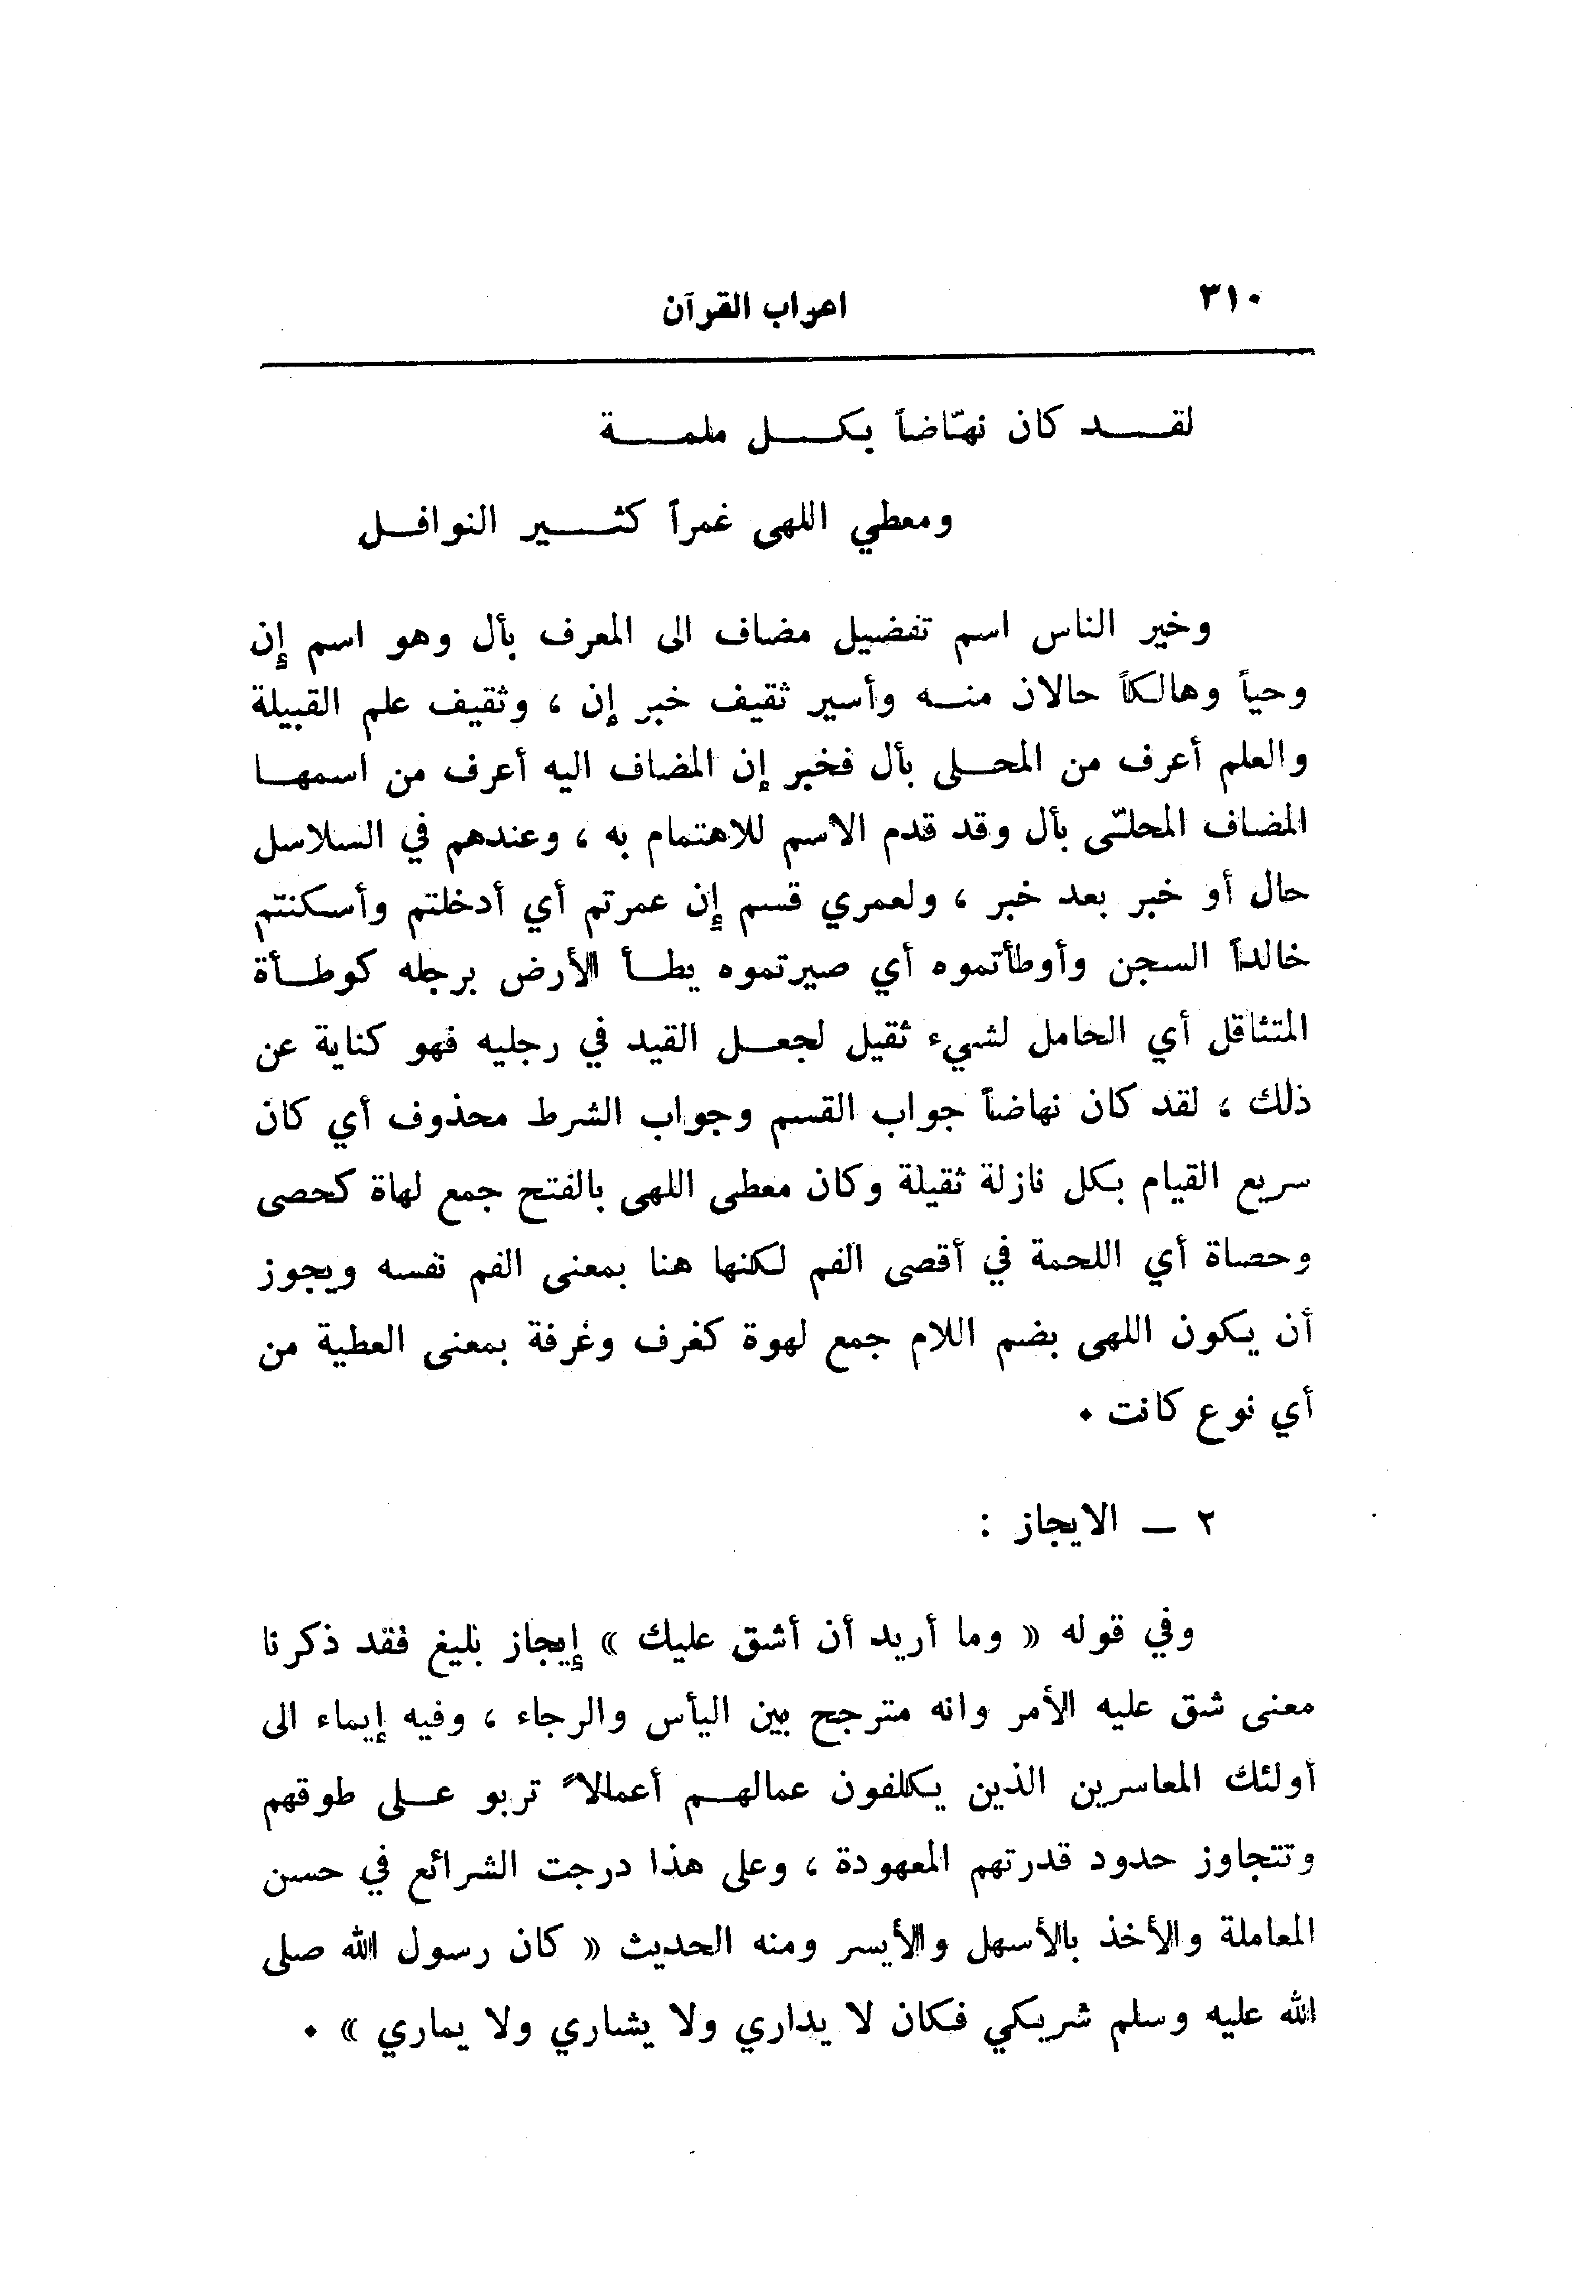 ٣١٠
اعراب القرآن
لقــــد كان نهّاضاً بكـــــل ملمـــــة
ومعطي اللهى غمراً كثـــــير النوافــل
وخير الناس اسم تفضيل مضاف الى المعرف بأل وهو اسم إن
وحياً وهالكاً حالان منــه وأسير ثقيف خبر إن ، وثقيف علم القبيلة
والعلم أعرف من المحــلى بأل فخبر إن المضاف اليه أعرف من اسمهــا
المضاف المحلّى بأل وقد قدم الاسم للاهتمام به ، وعندهم في السلاسل
حال أو خبر بعد خبر ، ولعمري قسم إن عمرتم أي أدخلتم وأسكنتم
خالداً السجن وأوطأتموه أي صيرتموه يطــأ الأرض برجله كوطــأة
المتثاقل أي الحامل لشيء ثقيل لجعــل القيد في رجليه فهو كناية عن
ذلك ، لقد كان نهاضاً جواب القسم وجواب الشرط محذوف أي كان
سريع القيام بكل نازلة ثقيلة وكان معطي اللهى بالفتح جمع لهاة كحصى
وحصاة أي اللحمة في أقصى الفم لكنها هنا بمعنى الفم نفسه ويجوز
أن يكون اللهى بضم اللام جمع لهوة كغرف وغرفة بمعنى العطية من
أي نوع كانت ٠
٢ ــ الايجاز :
وفي قوله « وما أريد أن أشق عليك » إيجاز بليغ فقد ذكرنا
معنى شق عليه الأمر وانه مترجح بين اليأس والرجاء ، وفيه إيماء الى
أولئك المعاسرين الذين يكلفون عمالهــم أعمالاً تربو عــلى طوقهم
وتتجاوز حدود قدرتهم المعهودة ، وعلى هذا درجت الشرائع في حسن
المعاملة والأخذ بالأسهل والأيسر ومنه الحديث « كان رسول الله صلى
الله عليه وسلم شريكي فكان لا يداري ولا يشاري ولا يماري » ٠